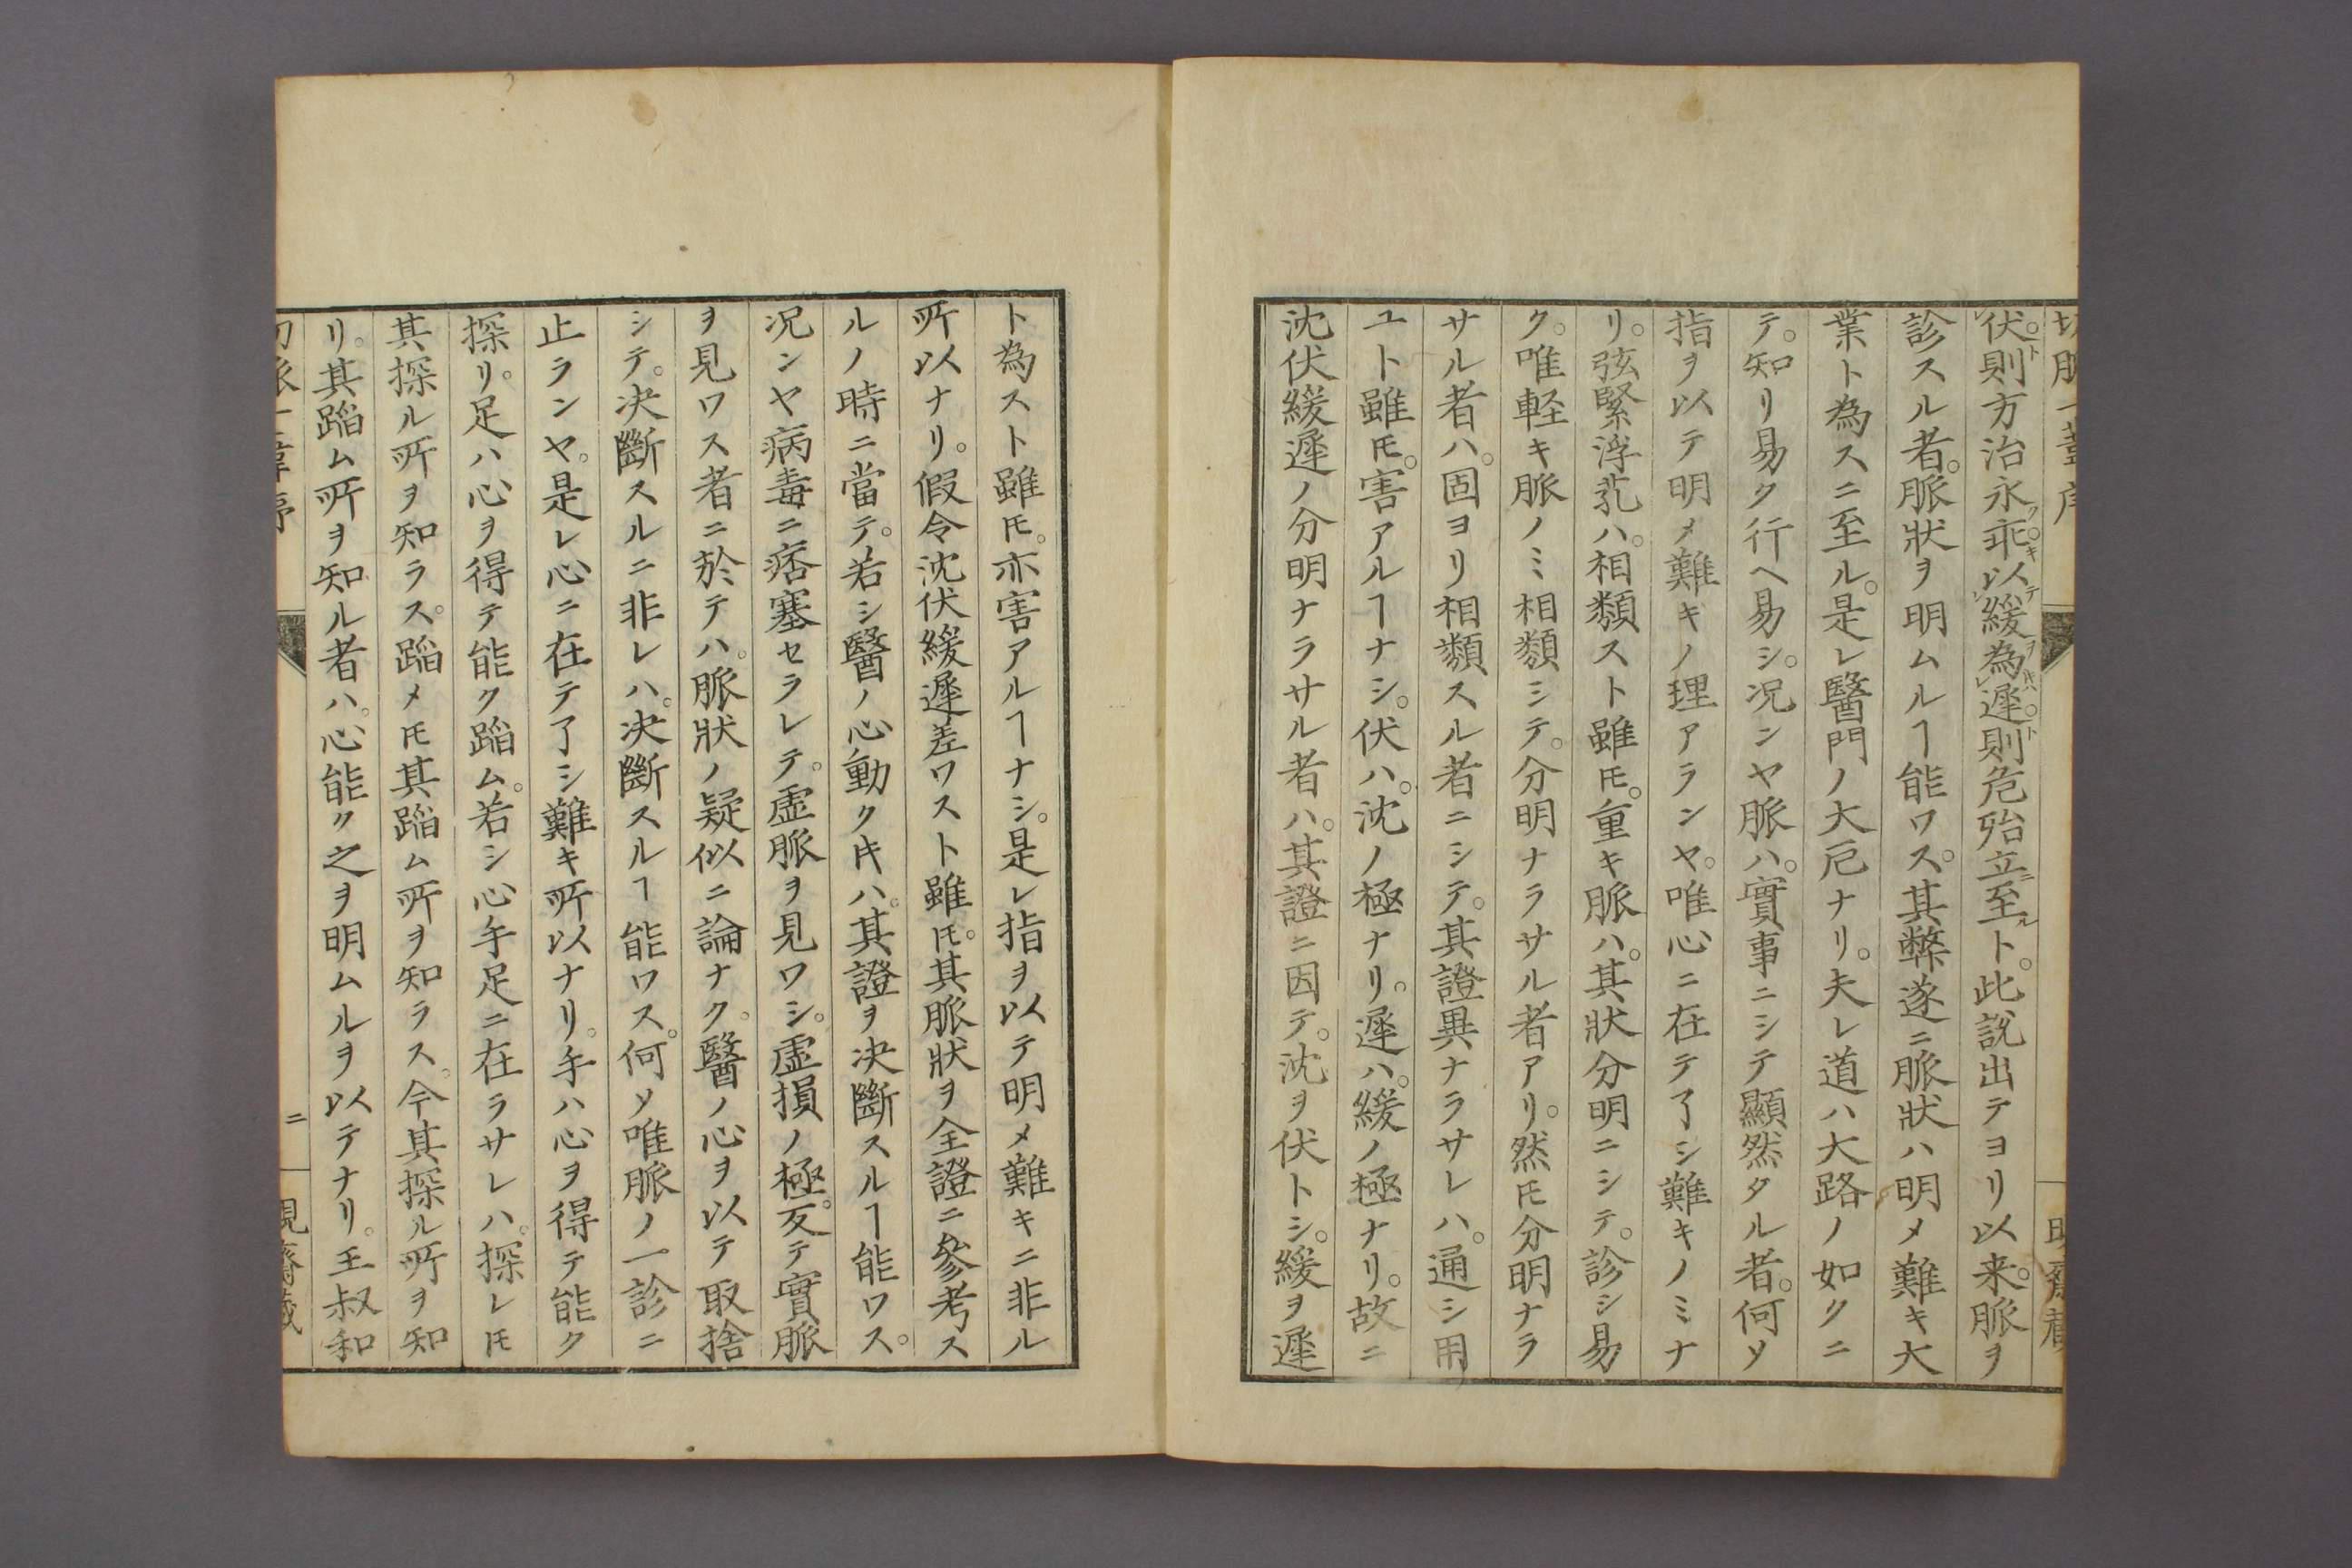 伏則方治永乖以緩為遲則危殆立至ト。此說出テヨリ以来。脈ヲ
診スル者。脈狀ヲ明ムルヿ能ワス。其弊遂ニ脈狀ハ明メ難キ大
業ト為スニ至ル。是レ醫門ノ大厄ナリ。夫レ道ハ大路ノ如クニ
テ。知リ易ク行ヘ易シ。况ンヤ脈ハ。實事ニシテ顯然タル者。何ソ
指ヲ以テ明メ難キノ理アランヤ。唯心ニ在テ了シ難キノミナ
リ。弦緊浮芤ハ。相類スト雖𪜈。重キ脈ハ。其狀分明ニシテ。診シ易
ク。唯軽キ脈ノミ相類シテ。分明ナラサル者アリ。然𪜈分明ナラ
サル者ハ。固ヨリ相類スル者ニシテ。其證異ナラサレハ。通シ用
ユト雖𪜈。害アルヿナシ。伏ハ。沈ノ極ナリ。遲ハ。緩ノ極ナリ。故ニ
沈伏緩遲ノ分明ナラサル者ハ。其證ニ因テ。沈ヲ伏トシ。緩ヲ遲
ト為スト雖𪜈。亦害アルヿナシ。是レ指ヲ以テ明メ難キニ非ル
所以ナリ。假令沈伏緩遲差ワスト雖𪜈。其脈狀ヲ全證ニ參考ス
ルノ時ニ當テ。若シ醫ノ心動クキハ。其證ヲ决斷スルヿ能ワス。
况ンヤ病毒ニ痞塞セラレテ。虛脈ヲ見ワシ。虛損ノ極。反テ實脈
ヲ見ワス者ニ於テハ。脈狀ノ疑似ニ論ナク。醫ノ心ヲ以テ取捨
シテ。决斷スルニ非レハ。决斷スルヿ能ワス。何ソ唯脈ノ一診ニ
止ランヤ。是レ心ニ在テ了シ難キ所以ナリ。手ハ心ヲ得テ能ク
探リ。足ハ心ヲ得テ能ク蹈ム。若シ心手足ニ在ラサレハ。探レ𪜈
其探ル所ヲ知ラス。蹈メ𪜈其蹈ム所ヲ知ラス。今其探ル所ヲ知
リ。其蹈ム所ヲ知ル者ハ。心能ク之ヲ明ムルヲ以テナリ。王叔和
二